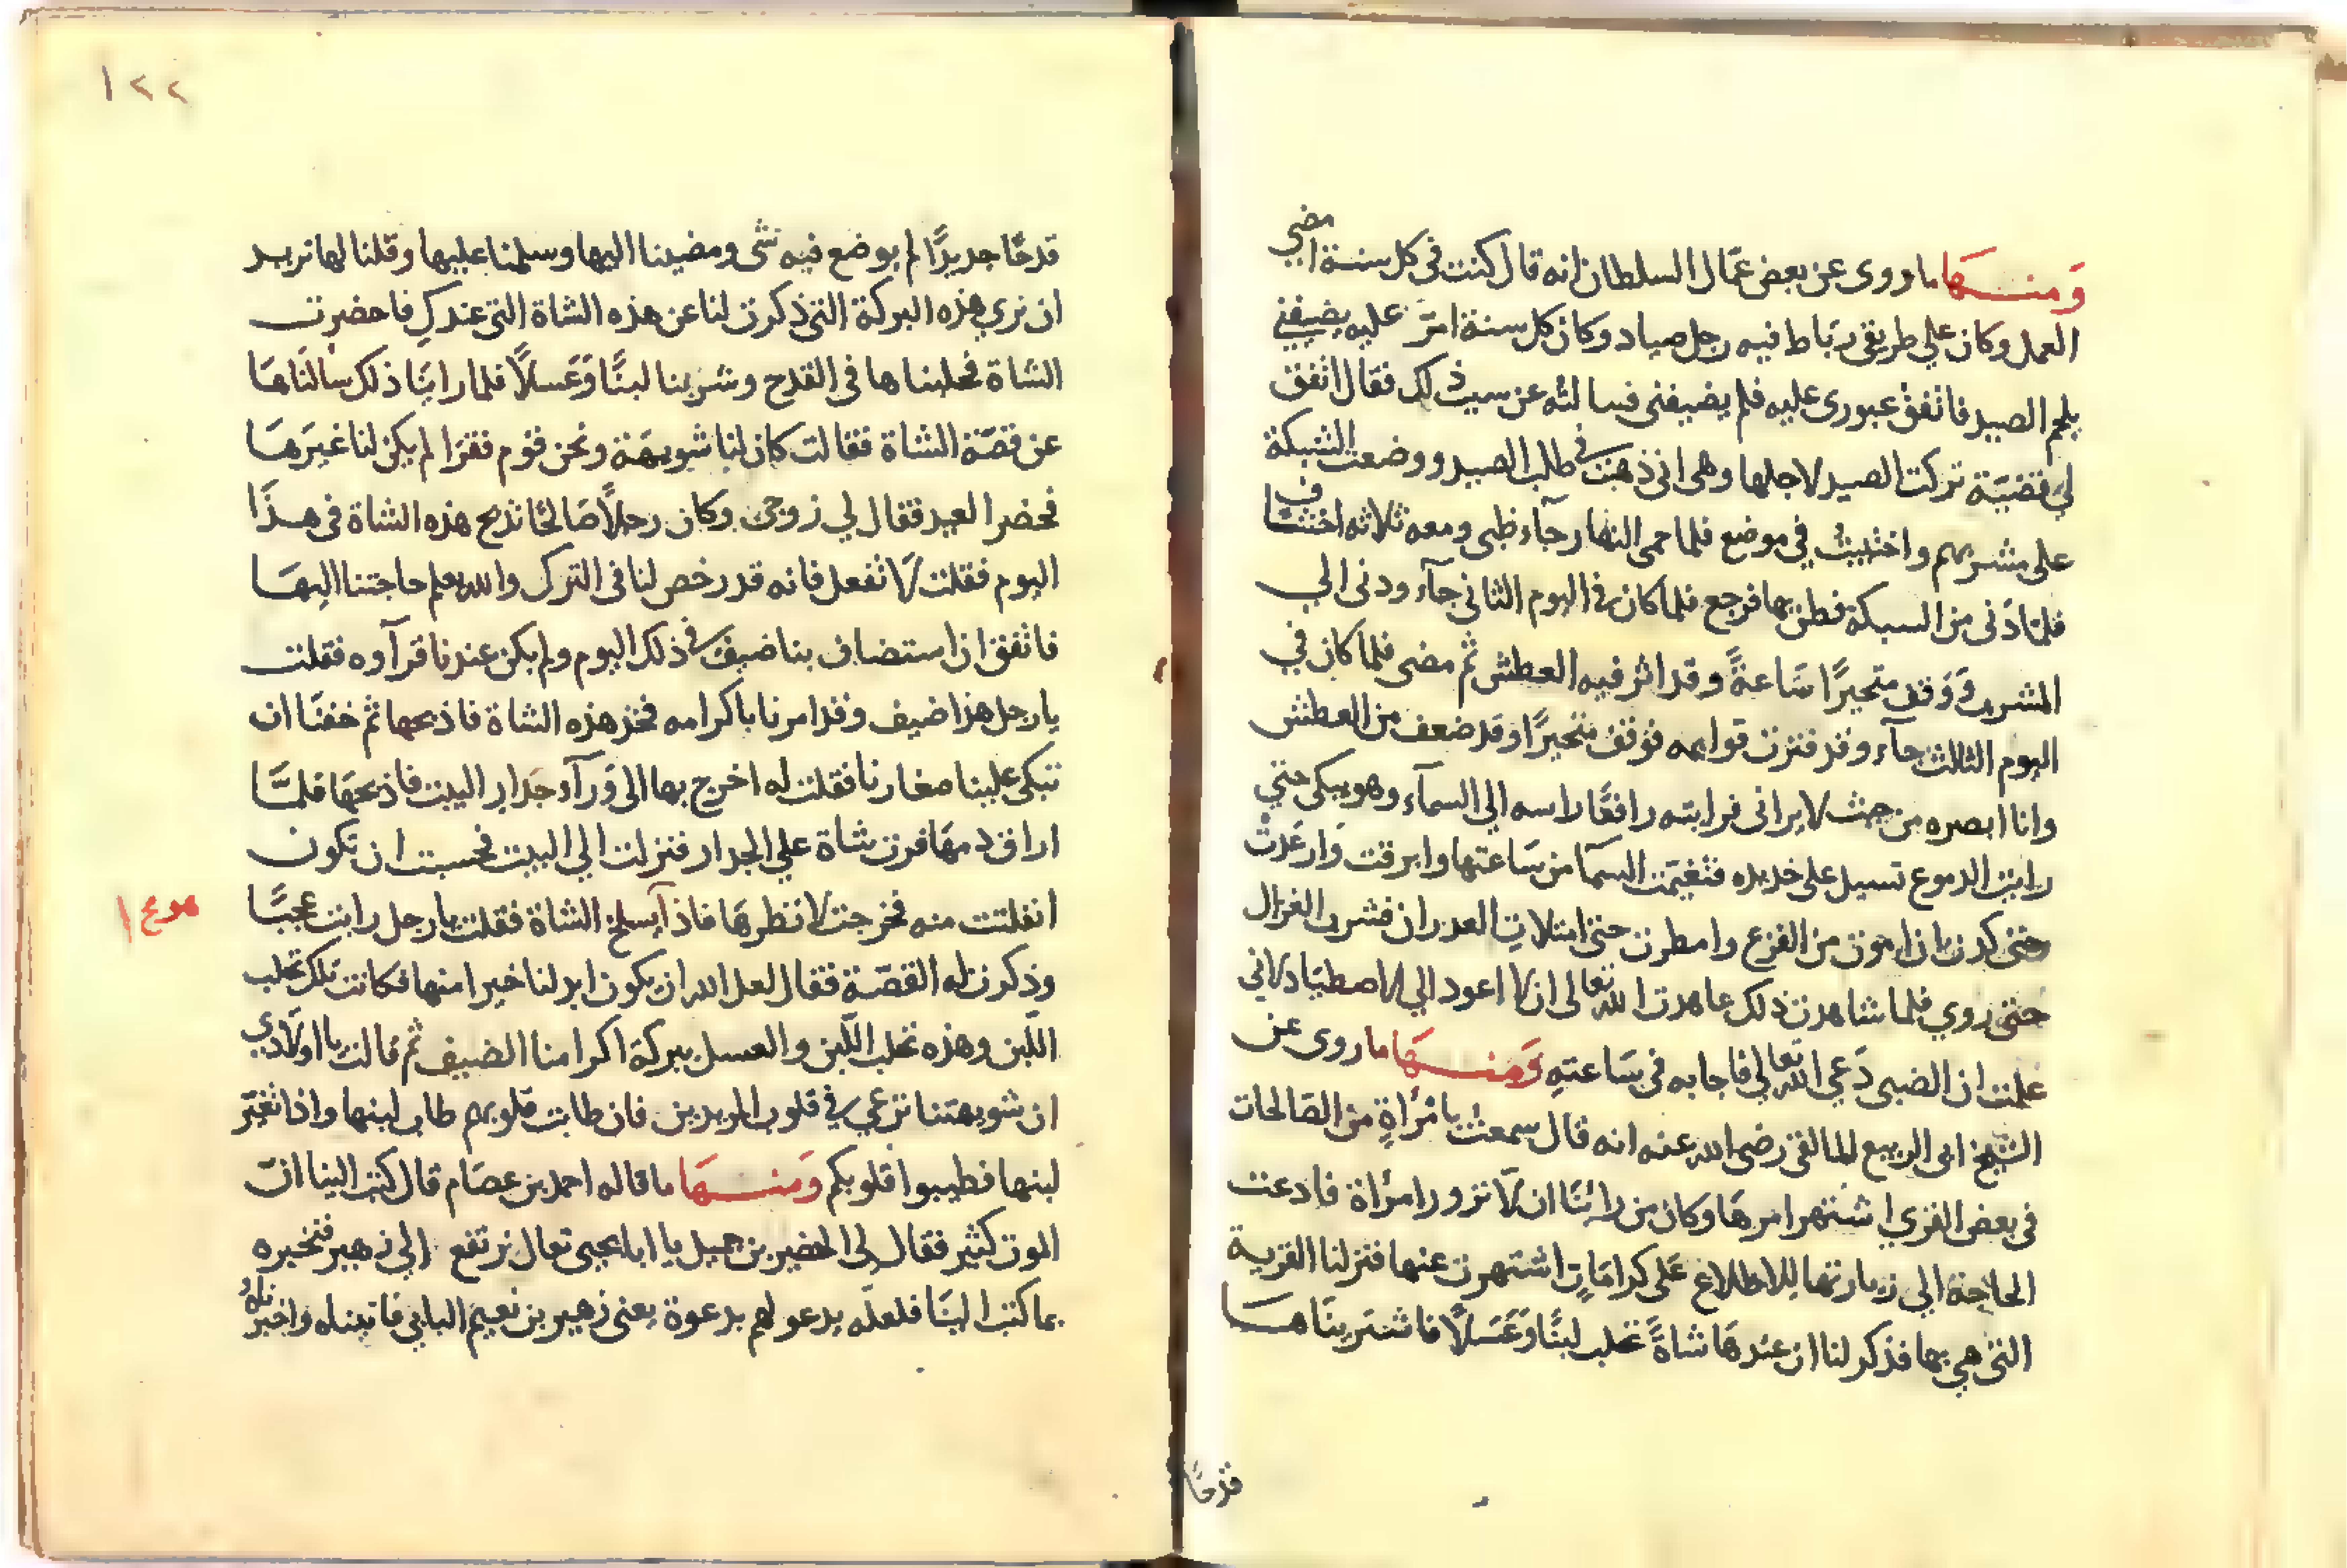 وَمنـــهَا ما روى عن بعض عمّال السلطان انه قال كنت فى كل سنة امضي
العمل وكان علي طريقى رَباط فيه رجل صياد وكان كل سنة امرّ عليه يضيفني
بلحم الصيد فاتفق عبورى عليه فلم يضيفنى فسالته عن سبب ذلك فقال اتفق
لي قضيّة تركت الصيد لاجلها وهى انى ذهبت فى طلب الصيد ووضعت الشبكة
على مشربهم واختبيت في موضع فلما حمى النهار جآء ظبى ومعه ثلاثه اخشاف
فلمّا دَنى من السبكة فطن بها فرجع فلما كان فى اليوم الثانى جآء ودنى الي
المشرب وَوَقف متحيرًا سَاعةً وقد اثر فيه العطش ثم مضى فلما كان في
اليوم الثالث جآء وقد فترت قوايمه فوقف متحيرًا وقد ضعف من العطش
وانا ابصره من حيث لا يرانى فرايته رافعًا راسه الي السمآء وهو يبكى حتي
رايت الدموع تسيل على خديه فتغيّمت السمآ من سَاعتها وابرقت وَارعَدتْ
حتى كدت ان اموت من الفزع وامطرت حتى امتلاتِ الغدران فشرب الغزال
حتى روي فلما شاهدت ذلك عاهدت الله تعالى ان لا اعود الي الاصطيَاد لانى
علمت ان الضبى دَعي الله تعالي فاجابه فى سَاعتهِ وَمنـــهَا ما روى عن
الشّيخ ابى الربيع المالقى رضى الله عنه انه قال سمعتُ بامْرأةٍ من الصَالحات
فى بعض القري اشتهر امرهَا وكان من رائنَا ان لّا نزور امرأة فادعت
الحَاجة الي زيارتها للاطلاع عَلى كرامَاتٍ اشتهرت عنها فنزلنا القرية
التى هي بها فذكر لنا ان عندهَا شاةً تحلب لبنًا وَعَسَلًا فاشترينَا هـــا
قدحًا
١٢٢
قدحًا جديدًا لم يوضع فيه شى ومضينا اليها وسلمنا عليها وقلنا لها نريـد
ان نري هذه البركة التى ذكرت لنا عن هذه الشاة التى عندكِ فاحضرت
الشاة فحلبناها فى القدح وشربنا لبنًا وَعَسلًا فلما راينَا ذلك سالنَاهَا
عن قصّة الشاة فقالت كان لنا شويهَة ونحن قوم فقرَا لم يكن لنا غيرَهَا
فحضر العيد فقال لي زوجى وكان رجلًا صَالحًا نذبح هذه الشاة فى هـذَا
اليوم فقلت لَا تفعل فانه قد رخص لنا فى الترك والله يعلم حاجتنا اليهَـا
فاتفق ان استضاف بنا ضيف فى ذلك اليوم ولم يكن عندنا قرآوه فقلت
يا رجل هذا ضيف وقد امرنا باكرامه فخذ هذه الشاة فاذبحها ثم خفنَا ان
تبكى علينا صغارنا فقلت له اخرج بها الى وَرآء جَدار البيت فاذبحهَا فلمَّـا
اراق دمهَا فرت شاة علي الجدار فنزلت الي البيت فحسبت ان تكون
انفلتت منه فخرجت لانظرهَا فاذا آيسلخ الشاة فقلت يا رجل رايت عجبًـا
وذكرت له القصّة فقال لعل الله ان يكون ابدلنا خيرا منها فكانت تلك تحلب
اللّبن وهذه تحلب اللّبن والعسل ببركة اكرامنا الضيف ثم قالت يا اولادى
ان شويهتنا ترعي فى قلوب المريدين فان طابت قلوبهم طاب لبنها واذا تغيّر
لبنها فطيبوا قلوبكم وَمنـــهَا ما قاله احمد بن عصَام قال كتب الينا انّ
الموت كثير فقال لى الخضير بن جميل يا ابا يحيى تعال نرتقع الي زهير فنخبره
بما كتب الينَا فلعلّه يدعو لهم بدعوة يعنى زهير بن نعيم البابي فاتيناه واخبرناهُ